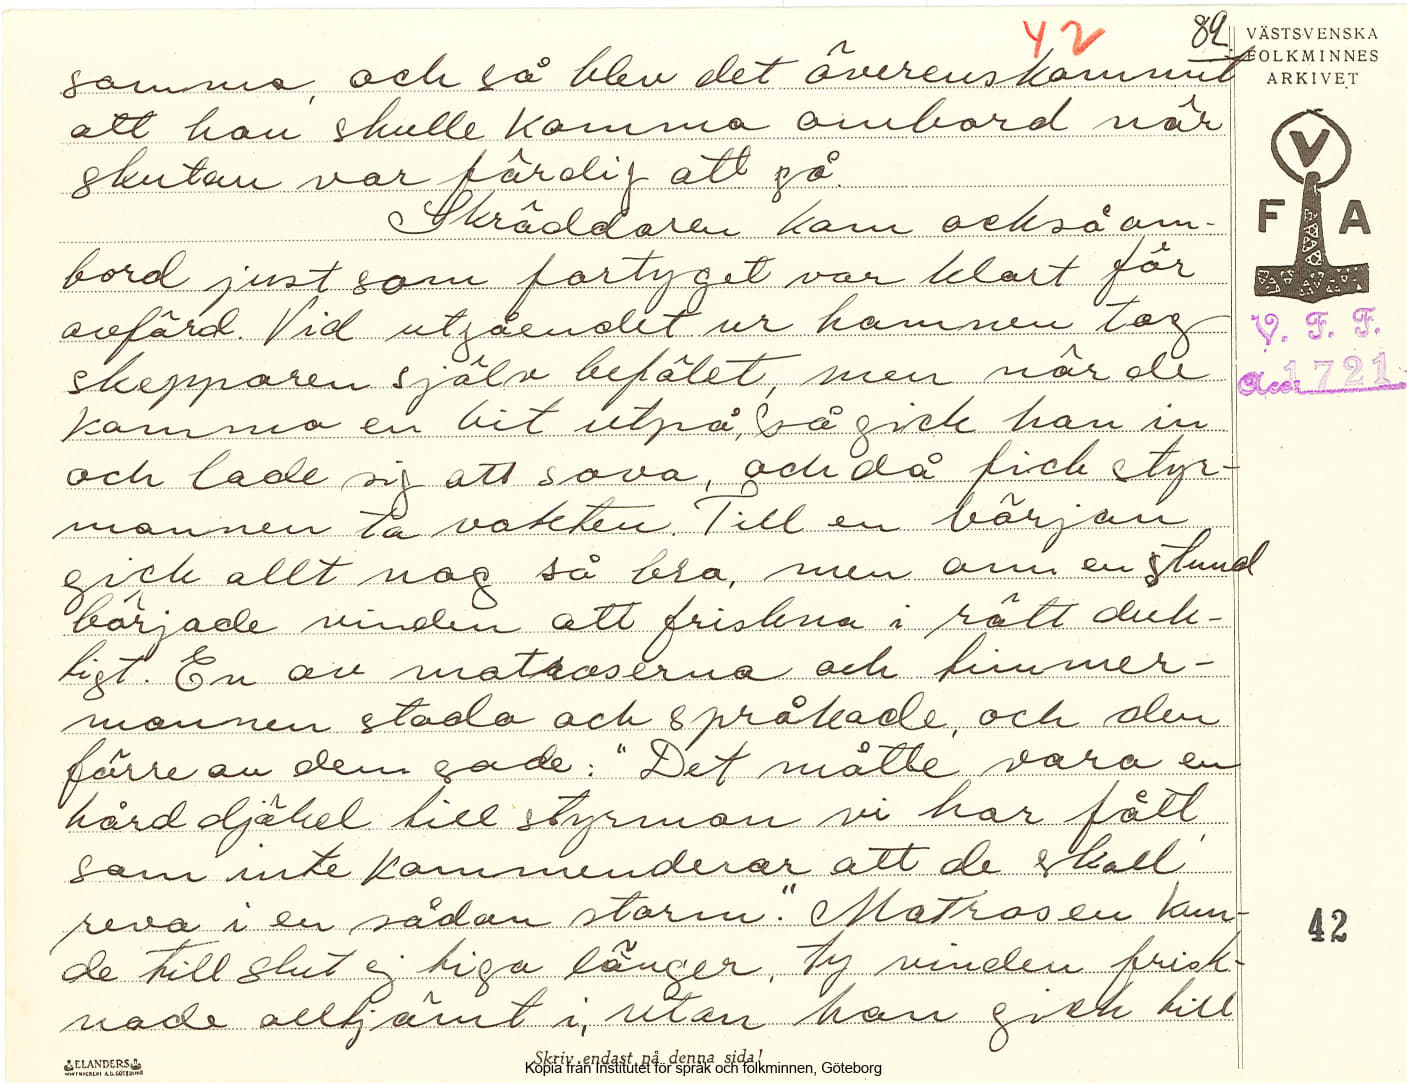 42
82
VÄSTSVENSKA
FOLKMINNES
ARKIVET
samma, och så blev det överenskommit
att han skulle komma ombord när
skutan var färdig att gå.
Skräddaren kom också om-
bord just som fartyget var klart för
avfärd. Vid utgåendet ur hamnen tog
skepparen själv befälet, men när de
kommo en bit utpå, så gick han in
och lade sig att sova, och då fick styr-
mannen ta vakten. Till en början
gick allt nog så bra, men om en stund
började vinden att friskna i rätt duk-
tigt. En av matroserna och timmer-
mannen stodo och språkade, och den
förre av dem sade: "Det måtte vara en
hård djäkel till styrman vi har fått,
som inte kommenderar att de skall
reva i en sådan storm." Matrosen kun-
de till slut ej tiga länger, ty vinden frisk-
nade alltjämt i, utan han gick till
V
F A
V. F. F.
Acc: 1721
42
ELANDERS
Skriv endast på denna sida!
Kopia från Institutet för språk och folkminnen, Göteborg